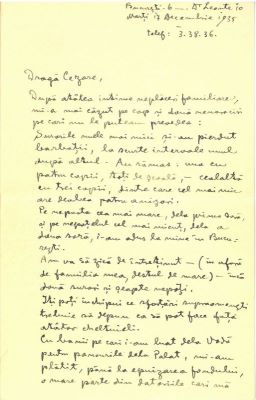 București - 6 - Dr Leonte 10
Marți 17 Decembrie 1935
telef: 3.38.36.
Dragă Cezare,
După atâtea intime neplăceri familiare,
mi-a mai căzut pe cap și două nenorociri
pe cari nu le puteam prevedea:
Surorile mele mai mici și-au pierdut
barbații, la scurte intervale unul
după altul. Au rămas: una cu
patru copii, toți de școală, - cealaltă
cu trei copii, dintre care cel mai mic
are deabea patru anișori.
Pe nepoata cea mai mare, dela prima soră,
și pe nepoțelul cel mai micuț, dela a
doua soră, i-am adus la mine în Bucu-
rești.
Am va să zică de întreținut - (în afară
de familia mea, destul de mare) - încă
două surori și șeapte nepoți.
Îți poți închipui ce sforțări supraomenești
trebuie să depun ca să pot face față
atâtor cheltuieli.
Cu banii pe cari i-am luat dela Vodă
pentru panourile dela Palat, mi-am
plătit, până la epuizarea fondului,
o mare parte din datoriile cari mă